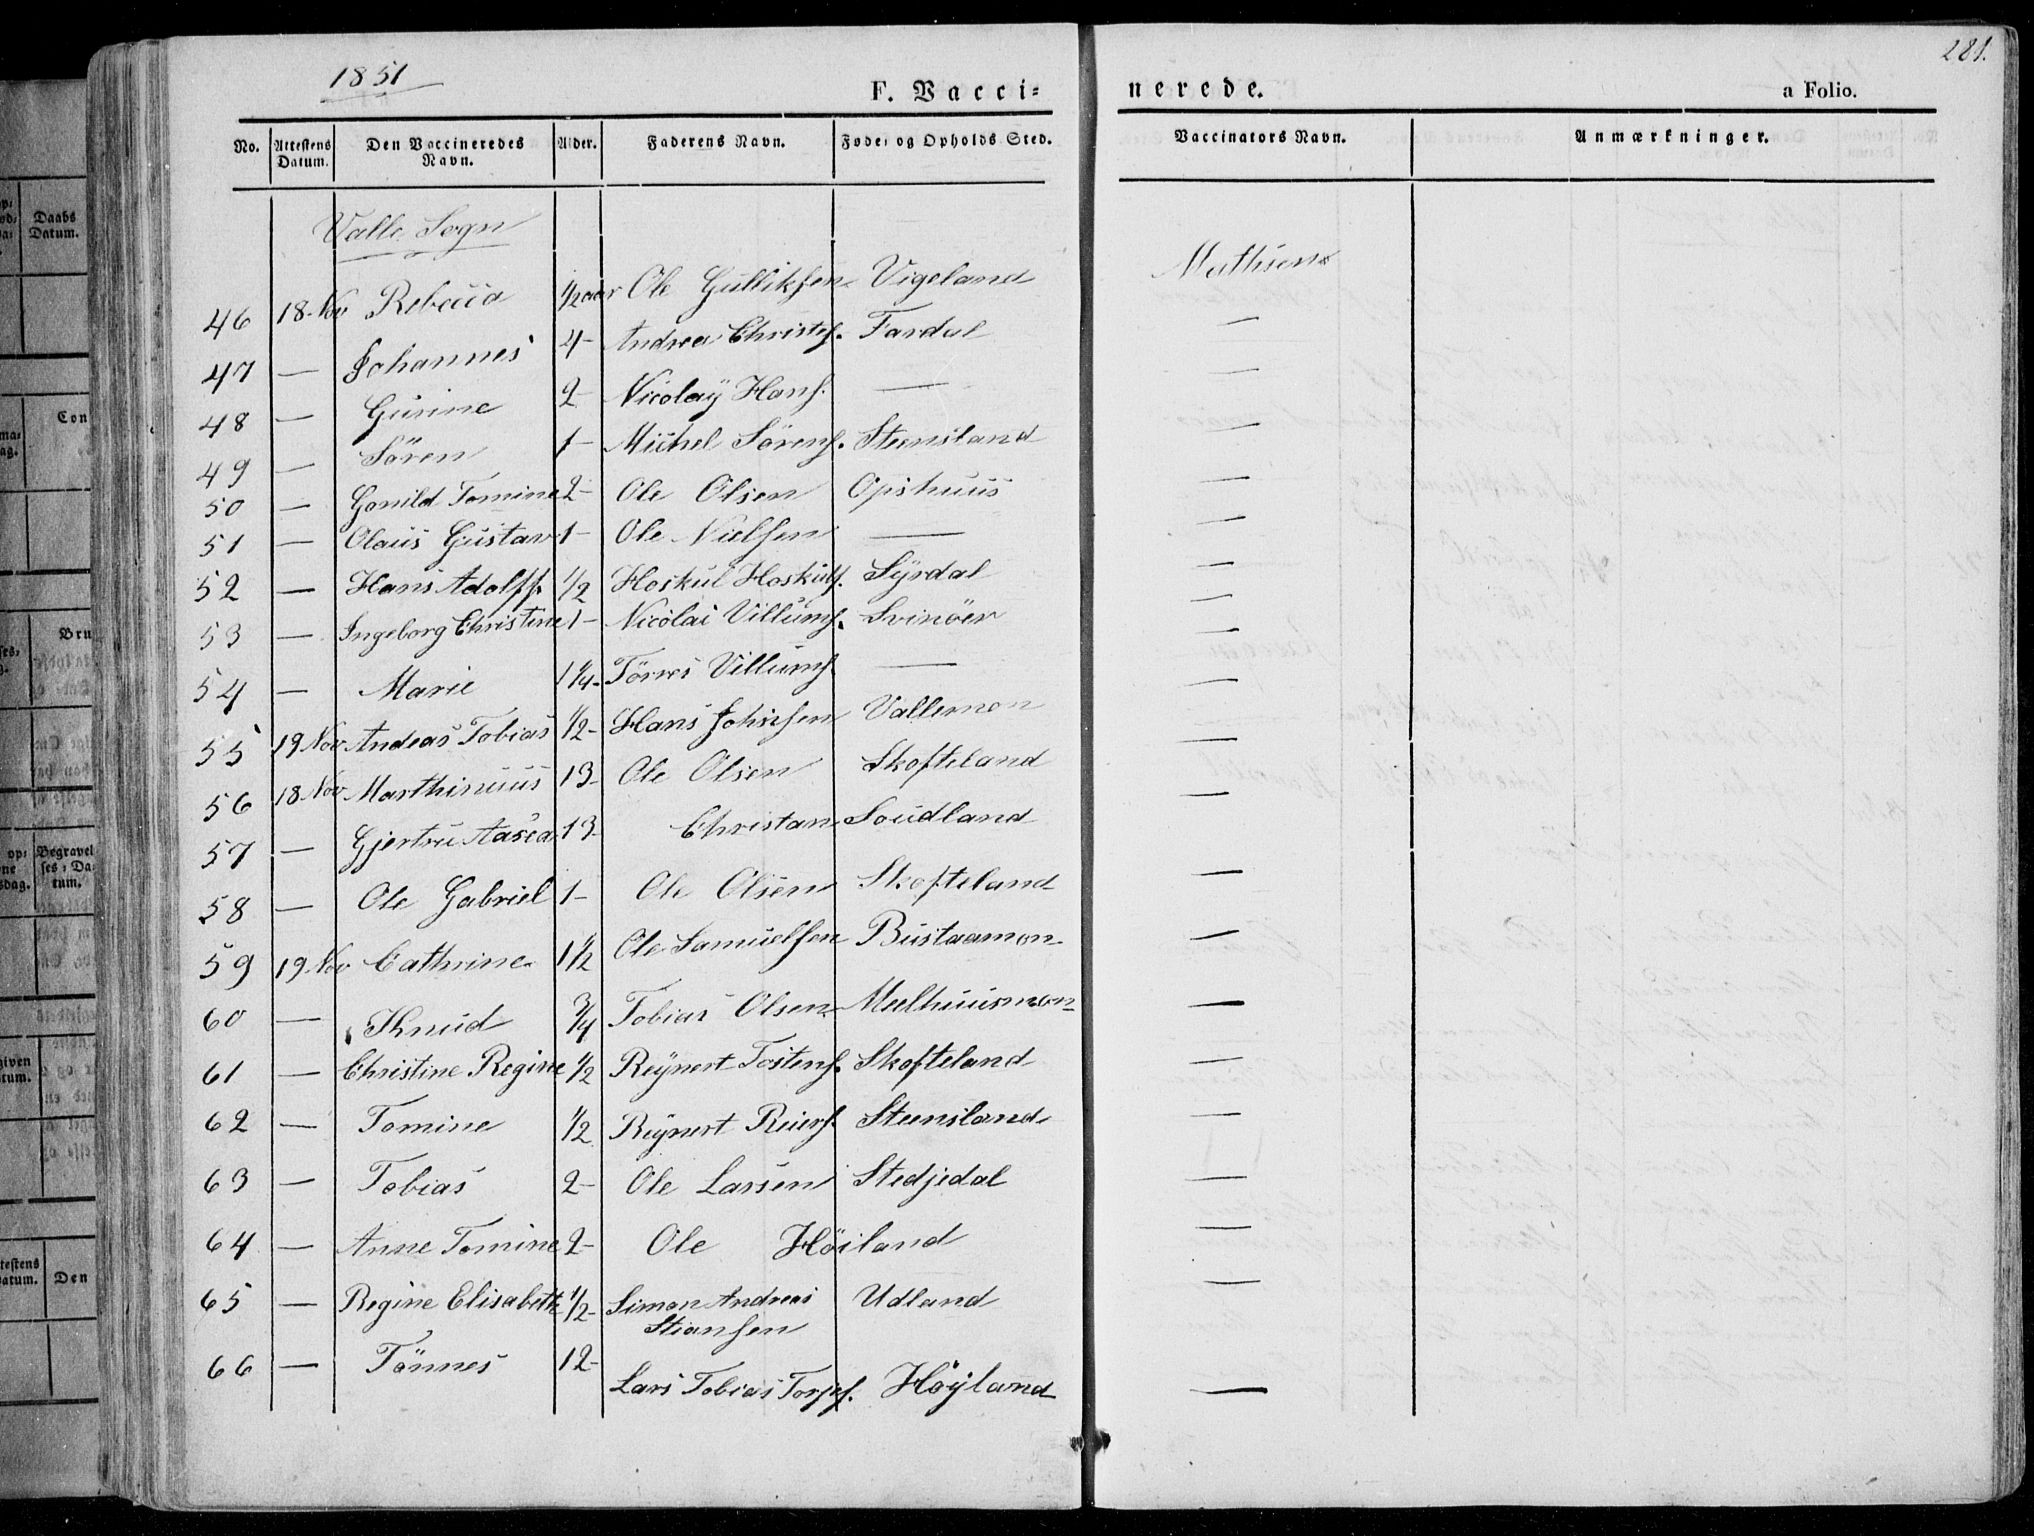 1851
281.
F. Vacci= nerede. a Folio.
No. Attestens Datum. Den Vaccineredes Navn. Alder. Faderens Navn. Føde- og Opholds Sted. Vaccinators Navn. Anmærkninger.
Valle Sogn
46 18 Nov Rebecca 1/2 aar Ole Gulliksen Vigeland Mathsen
47 — Johannes 4- Andreas Christes. Fardal —
48 — Gurine 2- Nicolaÿ Hans. — —
49 — Sören 1- Michel Sörens. Steensland —
50 — Gonild Tomine 2- Ole Olsen Opshuus —
51 — Olaus Gustav 1- Ole Nielsen — —
52 — Hans Adolff 1/2 Hoskul Hoskuls. Sÿrdal —
53 — Ingeborg Christine 1- Nicolai Villums. Svinöer —
54 — Marie 1 1/4- Törres Villums. — —
55 19 Nov Andeas Tobias 1/2- Hans Johnsen Vallemon —
56 18 Nov Marthinuus 13- Ole Olsen Skofteland —
57 — Gjertru Aasea 13- Christan Soudland —
58 — Ole Gabriel 1- Ole Olsen Skofteland —
59 19 Nov Cathrine 1 1/2 Ole Samuelsen Bustaamon —
60 — Knud 3/4 Tobias Olsen Meelhuusmon —
61 — Christine Regine 1/2 Reÿnert Tostens. Skofteland —
62 — Tomine 1/2 Reÿnert Reiers. Steensland —
63 — Tobias 2- Ole Larsen Stedjedal —
64 — Anne Tomine 2- Ole Höiland —
65 — Regine Elisabeth 1/2- Simon Andreas Stiansen Udland —
66 — Tönnes 12- Lars Tobias Torjes. Höÿland —
Daabs Datum.
Con
Bru
Begravelses-Datum.
Den